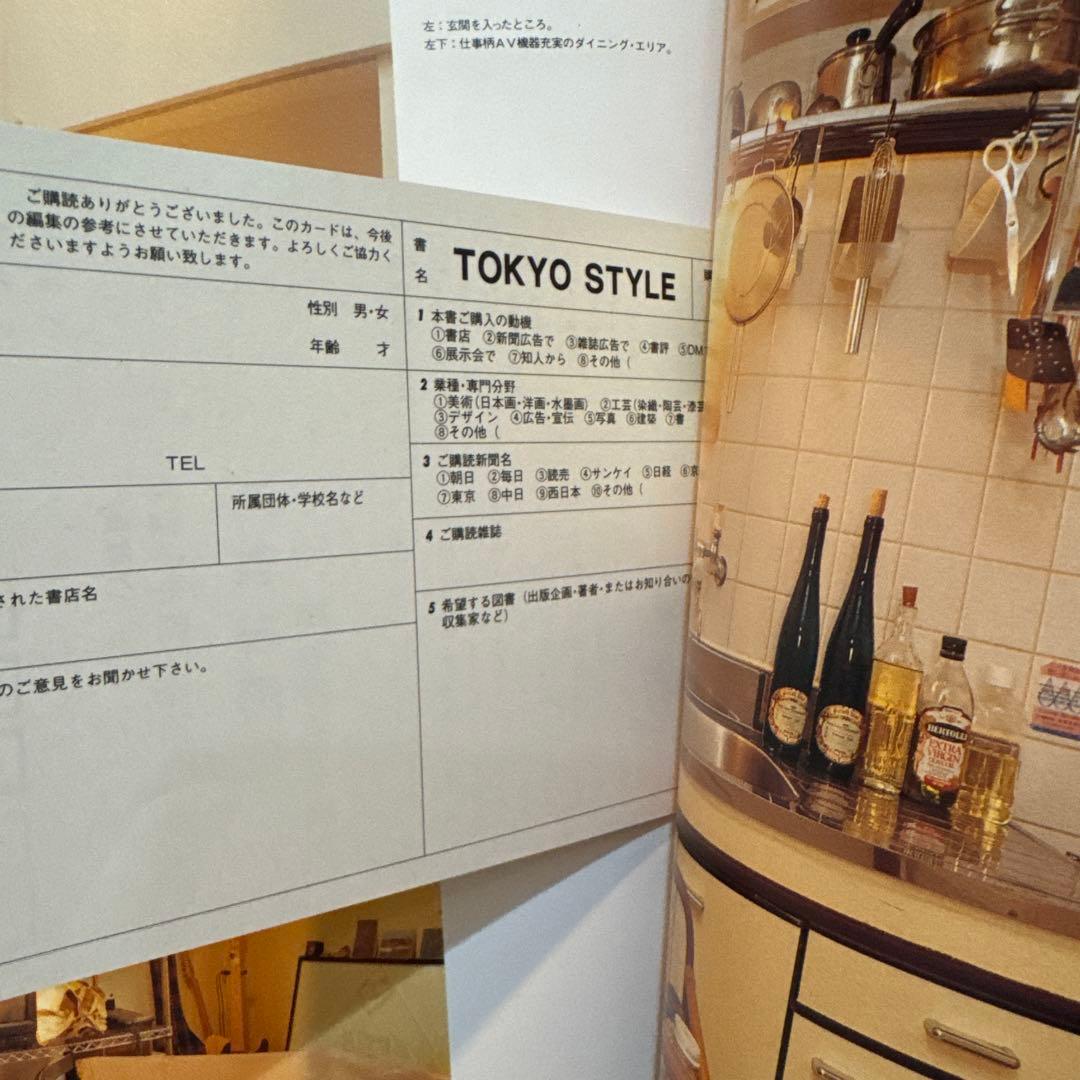 左：玄関を入ったところ。
左下：仕事柄ＡＶ機器充実のダイニング・エリア。
ご購読ありがとうございました。このカードは、今後
の編集の参考にさせていただきます。よろしくご協力く
ださいますようお願い致します。
性別　男・女
年齢　　才
TEL
所属団体・学校名など
された書店名
のご意見をお聞かせ下さい。
書名 TOKYO STYLE
1 本書ご購入の動機
①書店　②新聞広告で　③雑誌広告で　④書評　⑤DM
⑥展示会で　⑦知人から　⑧その他（
2 業種・専門分野
①美術（日本画・洋画・水墨画）　②工芸（染織・陶芸・漆芸
③デザイン　④広告・宣伝　⑤写真　⑥建築　⑦書
⑧その他（
3 ご購読新聞名
①朝日　②毎日　③読売　④サンケイ　⑤日経　⑥京
⑦東京　⑧中日　⑨西日本　⑩その他（
4 ご購読雑誌
5 希望する図書（出版企画・著者・またはお知り合いの
収集家など）
BERTOLLI
EXTRA
VIRGIN